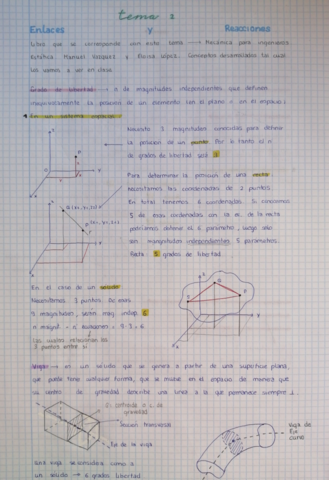 tema 1
Enlaces y Reacciones
Libro que se corresponde con este tema → Mecánica para ingenieros
Estática. Manuel Vázquez y Eloísa López. Conceptos desarrollados tal cual
los vamos a ver en clase.
Grado de libertad → nº de magnitudes independientes que definen
la posición de un elemento en el plano o en el espacio.
En un sistema espacial
Necesito 3 magnitudes conocidas para definir
la posición de un punto. Por lo tanto el nº
de grados de libertad será 3
Para determinar la posición de una recta
necesitamos las coordenadas de 2 puntos.
En total tenemos 6 coordenadas. Si conocemos
5 de esas coordenadas con la ec. de la recta
podríamos obtener el 6 parámetro, luego solo
son magnitudes independientes 5 parámetros.
Recta: 5 grados de libertad.
En el caso de un sólido
Necesitamos 3 puntos. De esas
9 magnitudes, serán mag. indep. 6
nº magnit - nº ecuaciones = 9-3 = 6
Las cuales relacionan los
3 puntos entre sí
Vigas → es un sólido que se genera a partir de una superficie plana,
que puede tener cualquier forma, que se mueve en el espacio de manera que
su centro de gravedad describe una línea a la que permanece siempre ⊥.
G: centroide o c. de
gravedad
Sección transversal
Eje de la viga
viga de
eje
curvo
Una viga se considera como a
un sólido → 6 grados libertad